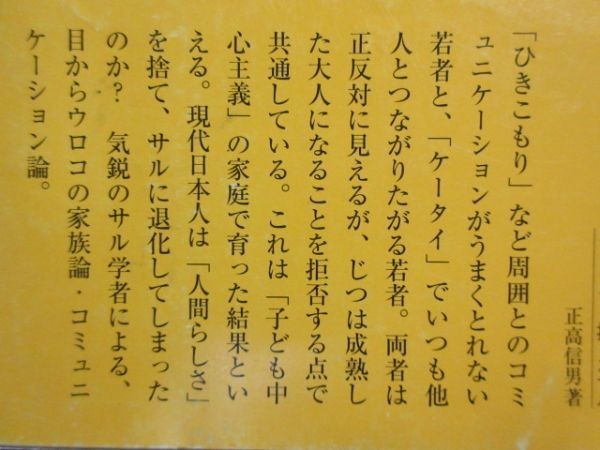 「ひきこもり」など周囲とのコミ
ュニケーションがうまくとれない
若者と、「ケータイ」でいつも他
人とつながりたがる若者。両者は
正反対に見えるが、じつは成熟し
た大人になることを拒否する点で
共通している。これは「子ども中
心主義」の家庭で育った結果とい
える。現代日本人は「人間らしさ」
を捨て、サルに退化してしまった
のか? 気鋭のサル学者による、
目からウロコの家族論・コミュニ
ケーション論。
正高信男著